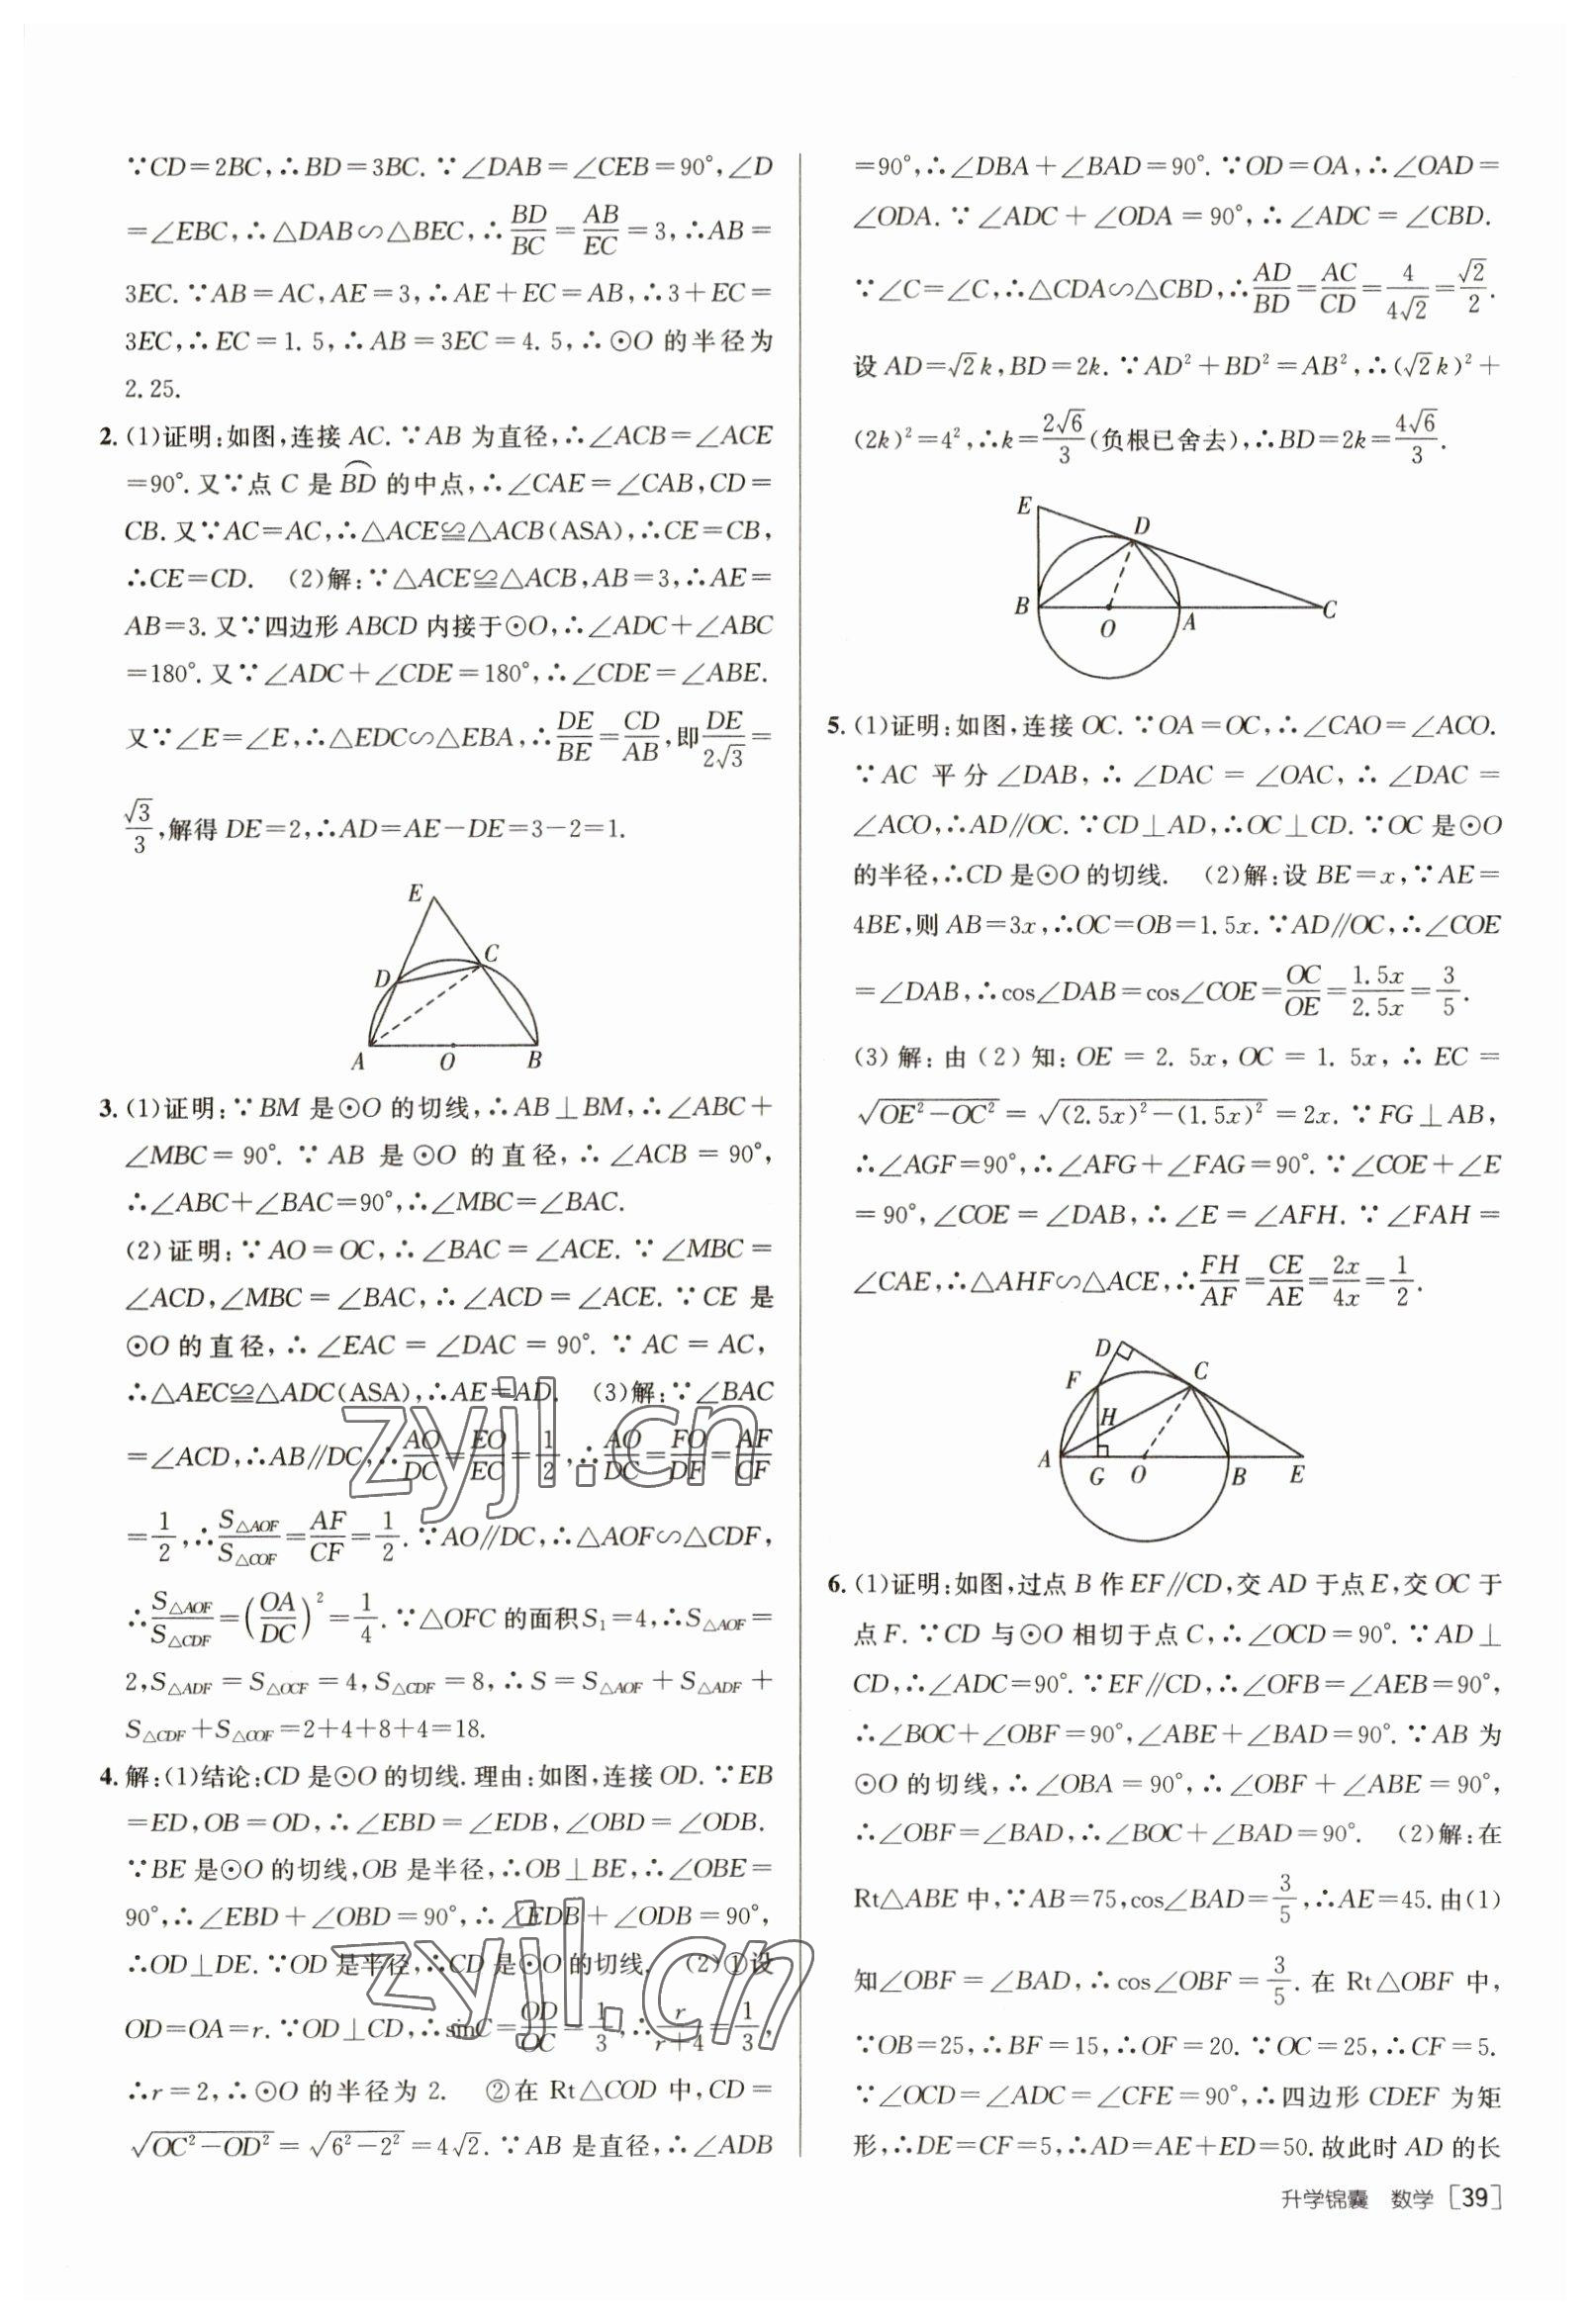 ∵CD=2BC,∴BD=3BC.∵∠DAB=∠CEB=90°,∠D
=∠EBC,∴△DAB∽△BEC,∴BD/BC=AB/EC=3,∴AB=
3EC.∵AB=AC,AE=3,∴AE+EC=AB,∴3+EC=
3EC,∴EC=1.5,∴AB=3EC=4.5,∴⊙O的半径为
2.25.
2.(1)证明:如图,连接AC.∵AB为直径,∴∠ACB=∠ACE
=90°.又∵点C是BD⌒的中点,∴∠CAE=∠CAB,CD=
CB.又∵AC=AC,∴△ACE≌△ACB(ASA),∴CE=CB,
∴CE=CD. (2)解:∵△ACE≌△ACB,AB=3,∴AE=
AB=3.又∵四边形ABCD内接于⊙O,∴∠ADC+∠ABC
=180°.又∵∠ADC+∠CDE=180°,∴∠CDE=∠ABE.
又∵∠E=∠E,∴△EDC∽△EBA,∴DE/BE=CD/AB,即DE/2√3=
√3/3,解得DE=2,∴AD=AE-DE=3-2=1.
E
D
C
A
O
B
3.(1)证明:∵BM是⊙O的切线,∴AB⊥BM,∴∠ABC+
∠MBC=90°.∵AB是⊙O的直径,∴∠ACB=90°,
∴∠ABC+∠BAC=90°,∴∠MBC=∠BAC.
(2)证明:∵AO=OC,∴∠BAC=∠ACE.∵∠MBC=
∠ACD,∠MBC=∠BAC,∴∠ACD=∠ACE.∵CE是
⊙O的直径,∴∠EAC=∠DAC=90°.∵AC=AC,
∴△AEC≌△ADC(ASA),∴AE=AD. (3)解:∵∠BAC
=∠ACD,∴AB∥DC,∴AO/DC=EO/EC=1/2,∴AO/DC=FO/DF=AF/CF
=1/2,∴S△AOF/S△COF=AF/CF=1/2.∵AO∥DC,∴△AOF∽△CDF,
∴S△AOF/S△CDF=(OA/DC)²=1/4.∵△OFC的面积S₁=4,∴S△AOF=
2,S△ADF=S△OCF=4,S△CDF=8,∴S=S△AOF+S△ADF+
S△CDF+S△COF=2+4+8+4=18.
4.解:(1)结论:CD是⊙O的切线.理由:如图,连接OD.∵EB
=ED,OB=OD,∴∠EBD=∠EDB,∠OBD=∠ODB.
∵BE是⊙O的切线,OB是半径,∴OB⊥BE,∴∠OBE=
90°,∴∠EBD+∠OBD=90°,∴∠EDB+∠ODB=90°,
∴OD⊥DE.∵OD是半径,∴CD是⊙O的切线. (2)①设
OD=OA=r.∵OD⊥CD,∴sinC=OD/OC=1/3,∴r/r+4=1/3,
∴r=2,∴⊙O的半径为2. ②在Rt△COD中,CD=
√(OC²-OD²)=√(6²-2²)=4√2.∵AB是直径,∴∠ADB
=90°,∴∠DBA+∠BAD=90°.∵OD=OA,∴∠OAD=
∠ODA.∵∠ADC+∠ODA=90°,∴∠ADC=∠CBD.
∵∠C=∠C,∴△CDA∽△CBD,∴AD/BD=AC/CD=4/4√2=√2/2.
设AD=√2k,BD=2k.∵AD²+BD²=AB²,∴(√2k)²+
(2k)²=4²,∴k=2√6/3(负根已舍去),∴BD=2k=4√6/3.
E
D
B
O
A
C
5.(1)证明:如图,连接OC.∵OA=OC,∴∠CAO=∠ACO.
∵AC平分∠DAB,∴∠DAC=∠OAC,∴∠DAC=
∠ACO,∴AD∥OC.∵CD⊥AD,∴OC⊥CD.∵OC是⊙O
的半径,∴CD是⊙O的切线. (2)解:设BE=x,∵AE=
4BE,则AB=3x,∴OC=OB=1.5x.∵AD∥OC,∴∠COE
=∠DAB,∴cos∠DAB=cos∠COE=OC/OE=1.5x/2.5x=3/5.
(3)解:由(2)知:OE=2.5x,OC=1.5x,∴EC=
√(OE²-OC²)=√((2.5x)²-(1.5x)²)=2x.∵FG⊥AB,
∴∠AGF=90°,∴∠AFG+∠FAG=90°.∵∠COE+∠E
=90°,∠COE=∠DAB,∴∠E=∠AFH.∵∠FAH=
∠CAE,∴△AHF∽△ACE,∴FH/AF=CE/AE=2x/4x=1/2.
D
F
C
H
A
G
O
B
E
6.(1)证明:如图,过点B作EF∥CD,交AD于点E,交OC于
点F.∵CD与⊙O相切于点C,∴∠OCD=90°.∵AD⊥
CD,∴∠ADC=90°.∵EF∥CD,∴∠OFB=∠AEB=90°,
∴∠BOC+∠OBF=90°,∠ABE+∠BAD=90°.∵AB为
⊙O的切线,∴∠OBA=90°,∴∠OBF+∠ABE=90°,
∴∠OBF=∠BAD,∴∠BOC+∠BAD=90°. (2)解:在
Rt△ABE中,∵AB=75,cos∠BAD=3/5,∴AE=45.由(1)
知∠OBF=∠BAD,∴cos∠OBF=3/5.在Rt△OBF中,
∵OB=25,∴BF=15,∴OF=20.∵OC=25,∴CF=5.
∵∠OCD=∠ADC=∠CFE=90°,∴四边形CDEF为矩
形,∴DE=CF=5,∴AD=AE+ED=50.故此时AD的长
升学锦囊 数学[39]
zyjl.cn
zyjl.cn